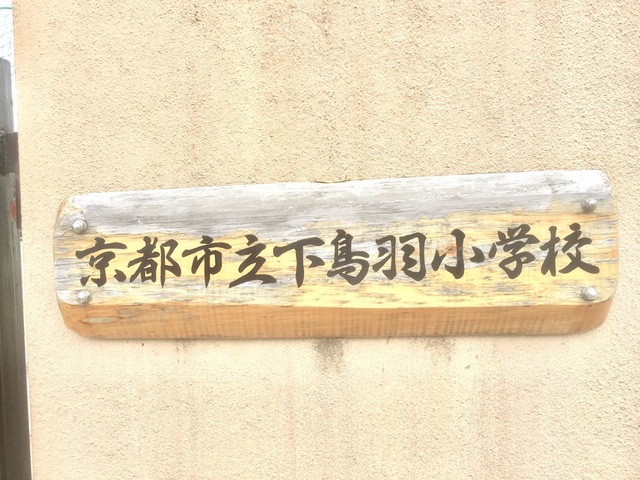 京都市立下鳥羽小学校